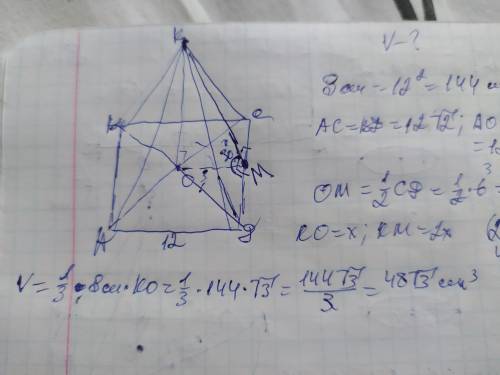 V-?
Sосн = 12² = 144 c
AC=BD=12√2; AO
OM=½CD=½·6
KO=x; KM=2x
K
B
C
O
M
A
12
D
V=⅓·Sосн·KO=⅓·144·√3=144√3/3=48√3 cm³